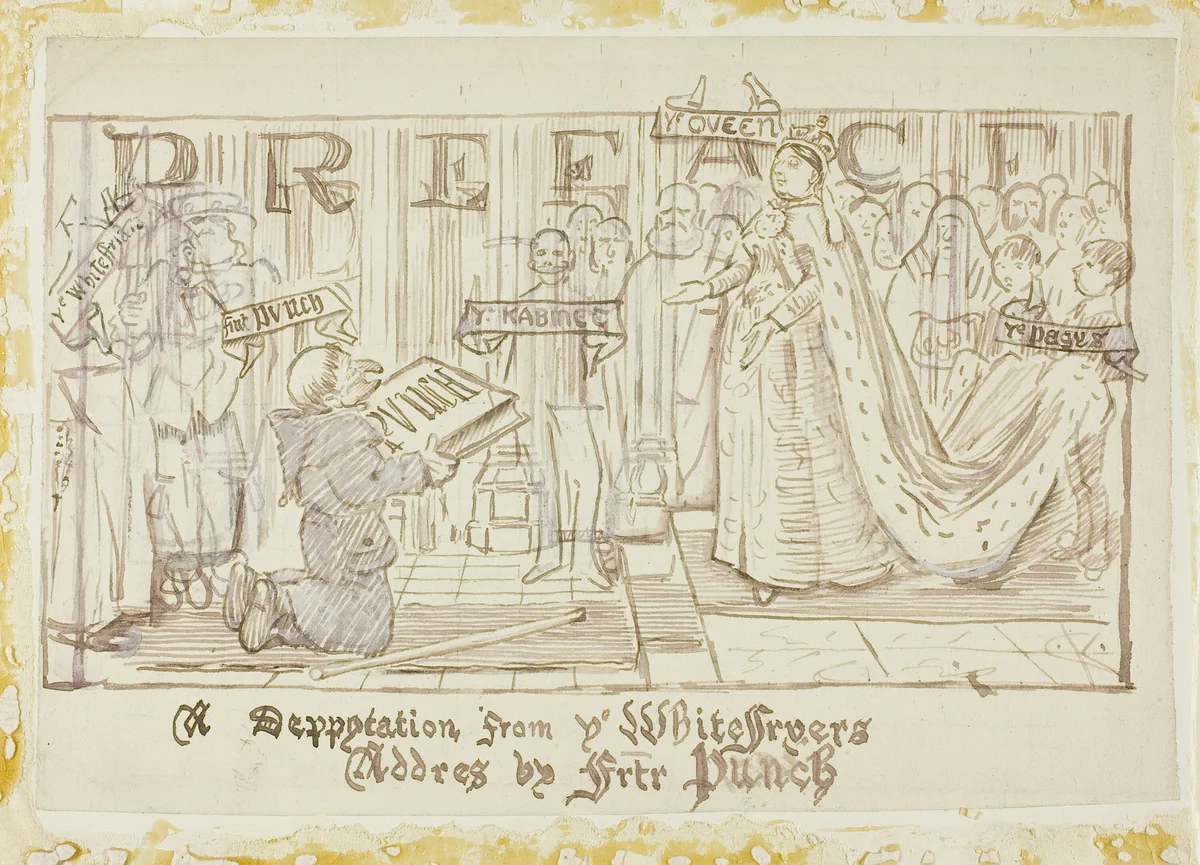 PREFACE
Yᵉ QVEEN
Yᵉ Whitefriars
PVNCH
Yᵉ KABINET
PVNCH
Yᵉ Pages
A Deppytation, from yᵉ WhiteFryers
Addres by Frtr Punch